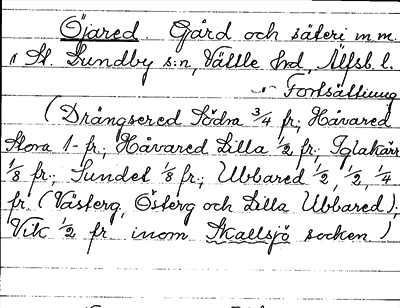 Öjared. Gård och säteri m.m.
i St. Lundby s:n, Vättle hd, Älfsb. l.
Fortsättning
(Drängsered Södra 3/4 fr; Håvared
Stora 1- fr; Håvared Lilla 1/2 fr; Iglakärr
1/8 fr; Sundet 1/8 fr; Ubbared 1/2, 1/2, 1/4
fr. (Västerg, Österg och Lilla Ubbared),
Vik 1/2 fr inom Skallsjö socken)